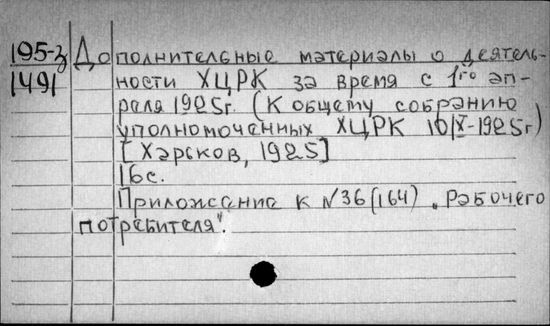 195-з Дополнительные материалы о деятель-
1491 ности ХЦРК за время с 1го ап-
реля 1925г. (К общему собранию
уполномоченных ХЦРК 10/X-1925г)
[Харьков, 1925]
16с.
Приложение к №36(164) „Рабочего
потребителя".